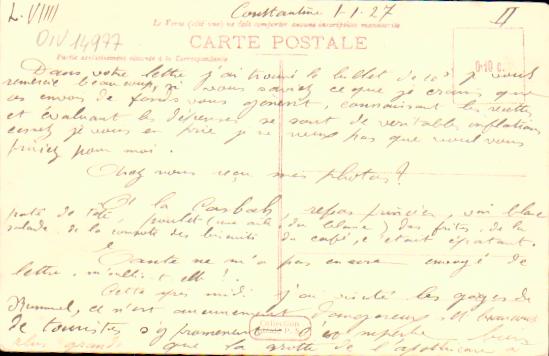 L. VIII
Constantine 1-1-27
II
OIV 14977
Le Verso (côté vue) ne fait comporter aucune inscription manuscrite
CARTE POSTALE
Partie exclusivement réservée à la Correspondance
0-10 c.
Dans votre lettre j'ai trouvé le billet de 10 f je vous
remercie beaucoup, si vous saviez ce que je crains que
ces envois de fonds vous gênent, connaissant les recettes
et évaluant les dépenses ce sont de véritables inflations
cessez je vous en prie je ne veux pas que vous vous
priviez pour moi.
Avez vous reçu mes photos?
A la Casbah, repas princier, vin blanc
pâté de foie, poulet (une aile, du blanc) des frites, de la
salade, de la compote des biscuits du café, c'était épatant.
Tante ne m'a pas encore envoyé de
lettre, m'oublie t elle!
Cette après midi j'ai visité les gorges du
Rummel, ce n'est aucunement dangereux et beaucoup
de touristes s'y promènent c'est superbe
plus grande que la grotte de l'apothicaire